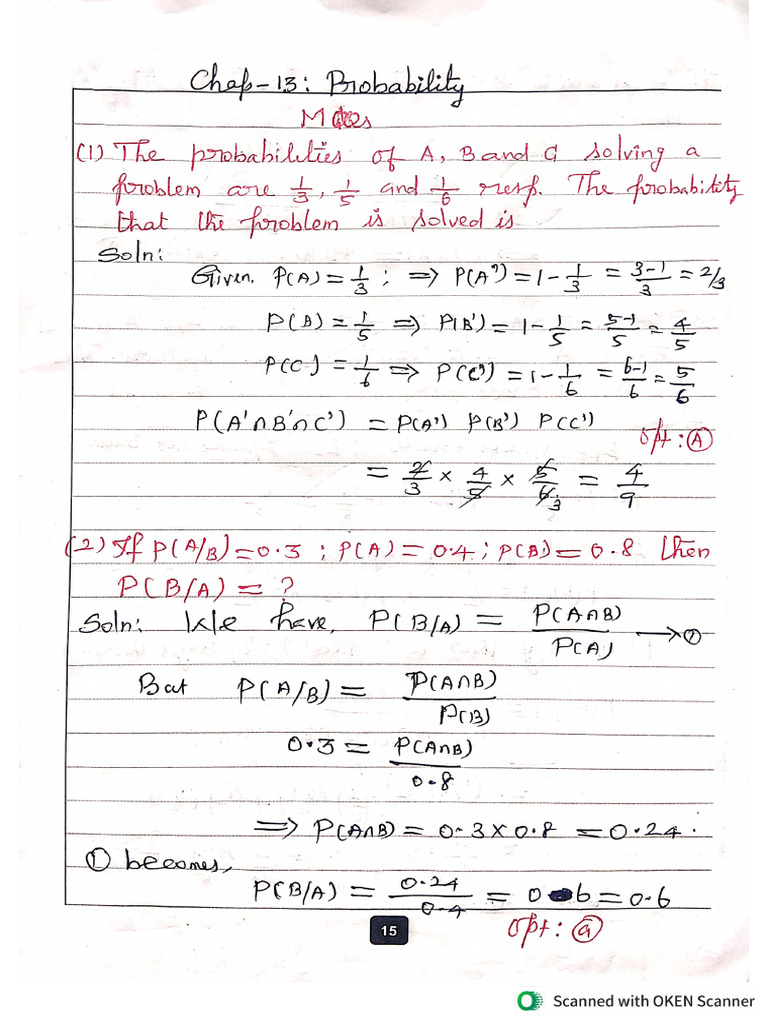 Chap-13: Probability
MCQs
(1) The probabilities of A, B and C solving a
problem are 1/3, 1/5 and 1/6 resp. The probability
that the problem is solved is
Soln:
Given, P(A) = 1/3 ; ⇒ P(A') = 1 - 1/3 = 3-1/3 = 2/3
P(B) = 1/5 ⇒ P(B') = 1 - 1/5 = 5-1/5 = 4/5
P(C) = 1/6 ⇒ P(C') = 1 - 1/6 = 6-1/6 = 5/6
P(A'∩B'∩C') = P(A') P(B') P(C')
opt: Ⓐ
= 2/3 × 4/5 × 5/6 3 = 4/9
(2) If P(A/B) = 0.3 ; P(A) = 0.4 ; P(B) = 0.8 then
P(B/A) = ?
Soln: We have, P(B/A) = P(A∩B)/P(A) → ①
But P(A/B) = P(A∩B)/P(B)
0.3 = P(A∩B)/0.8
⇒ P(A∩B) = 0.3 × 0.8 = 0.24.
① becomes,
P(B/A) = 0.24/0.4 = 0.6 = 0.6
opt: ⓐ
15
Scanned with OKEN Scanner